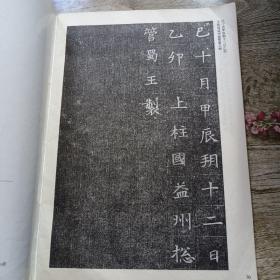 已十月甲辰朔十二日
乙卯上柱國益州揔
管蜀王製